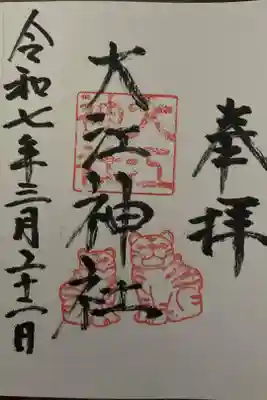 奉拝
大江神社
令和七年三月二十二日